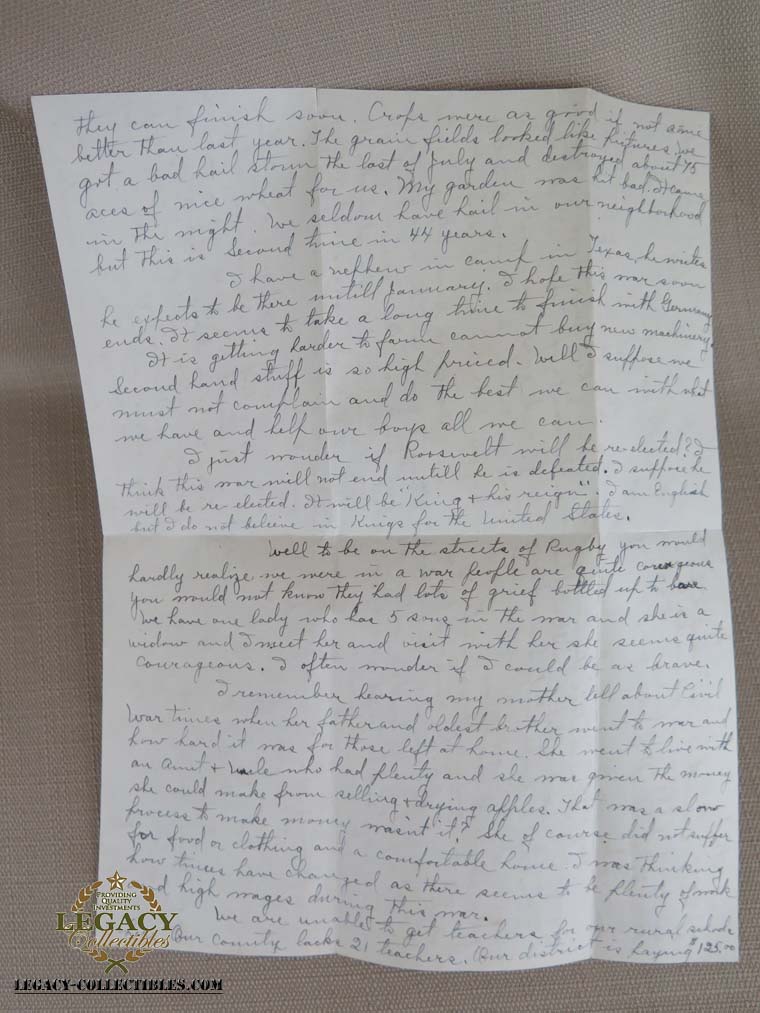 they can finish soon. Crops were as good if not some
better than last year. The grain fields looked like pictures. We
got a bad hail storm the last of July and destroyed about 75
aces of nice wheat for us. My garden was hit bad. It came
in the night. We seldom have hail in our neighborhood
but this is Second time in 44 years.
I have a nephew in camp in Texas, he writes
he expects to be there untill January. I hope this war soon
ends. It seems to take a long time to finish with Germany.
It is getting harder to farm cannot buy new machinery.
Second hand stuff is so high priced. Well I suppose we
must not complain and do the best we can with what
we have and help our boys all we can.
I just wonder if Roosevelt will be re-elected? I
think this war will not end untill he is defeated. I suppose he
will be re elected. It will be "King & his reign". I am English
but I do not believe in Kings for the United States.
Well to be on the streets of Rugby you would
hardly realize we were in a war people are quite courageous
You would not know they had lots of grief bottled up to bare.
We have one lady who has 5 sons in the war and she is a
widow and I meet her and visit with her she seems quite
courageous. I often wonder if I could be as brave.
I remember hearing my mother tell about Civil
War times when her father and oldest brother went to war and
how hard it was for those left at home. She went to live with
an Aunt & Uncle who had plenty and she was given the money
she could make from selling & drying apples. That was a slow
process to make money wasn't it? She of course did not suffer
for food or clothing and a comfortable home. I was thinking
how times have changed as there seems to be plenty of work
high wages during this war.
We are unable to get teachers for our rural schools
Our county lacks 21 teachers. Our district is paying $125.00
PROVIDING
QUALITY
INVESTMENTS
LEGACY
Collectibles
LEGACY-COLLECTIBLES.COM